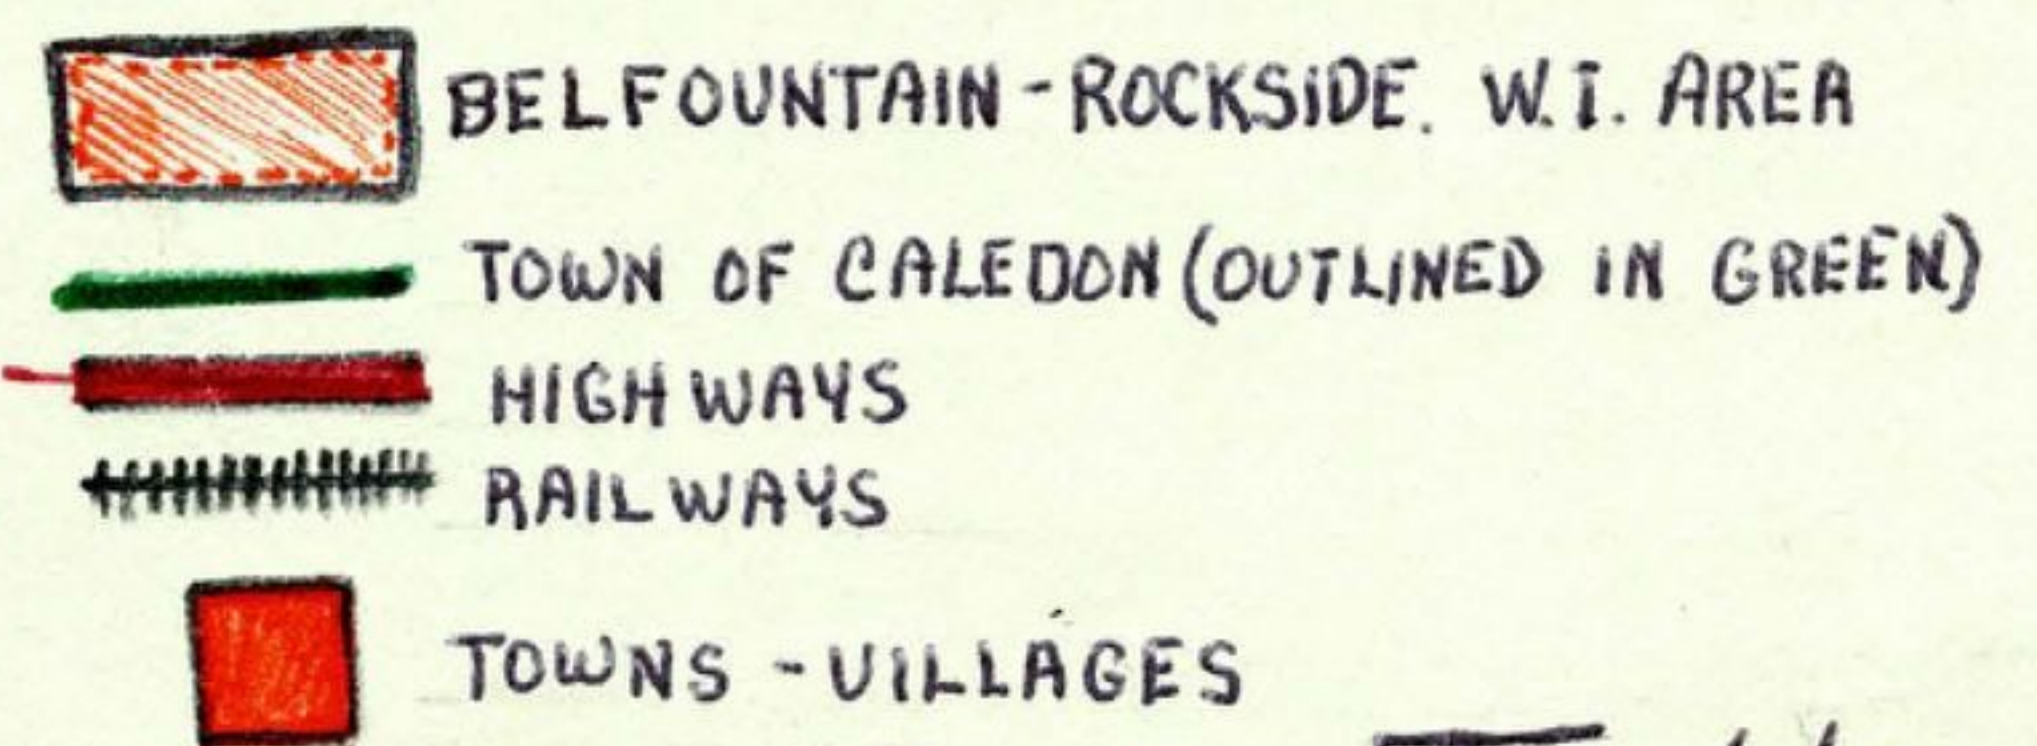 BELFOUNTAIN - ROCKSIDE. W.I. AREA
TOWN OF CALEDON (OUTLINED IN GREEN)
HIGHWAYS
RAILWAYS
TOWNS - VILLAGES